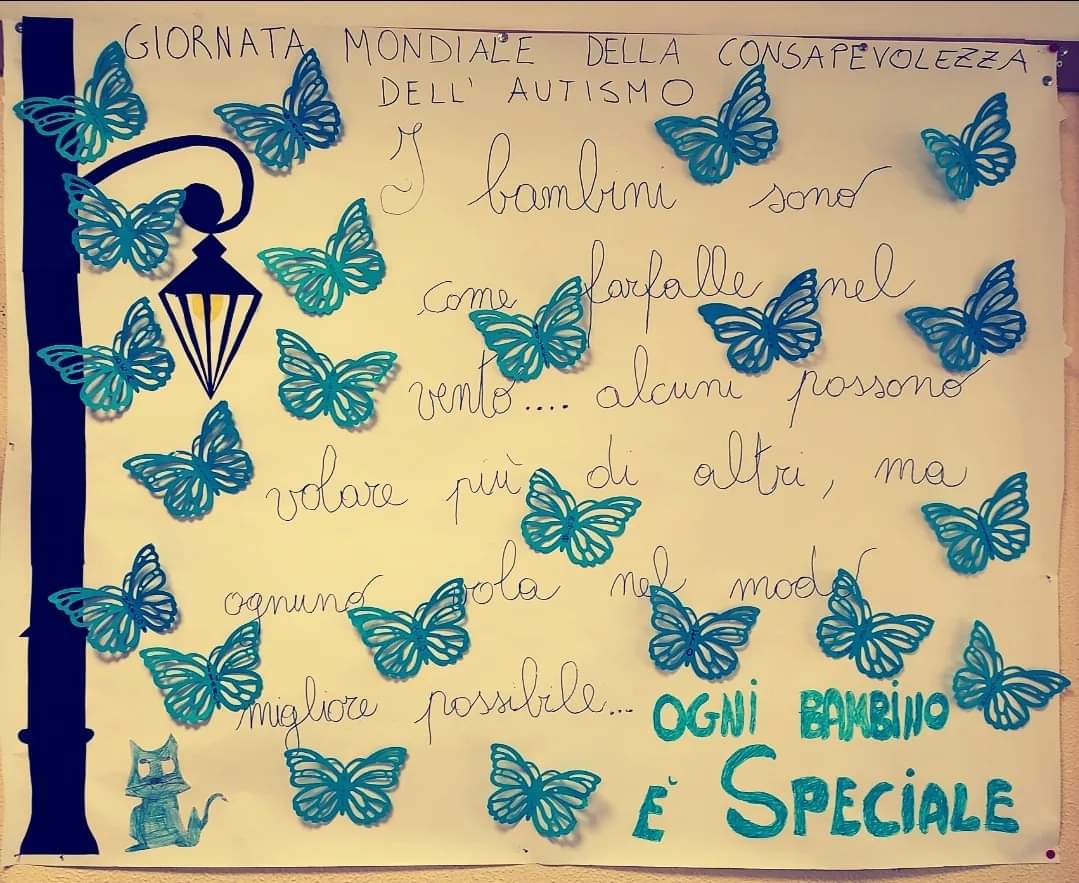 GIORNATA MONDIALE DELLA CONSAPEVOLEZZA
DELL' AUTISMO
I bambini sono
come farfalle nel
vento.... alcuni possono
volare più di altri, ma
ognuno vola nel modo
migliore possibile...
OGNI BAMBINO
È SPECIALE